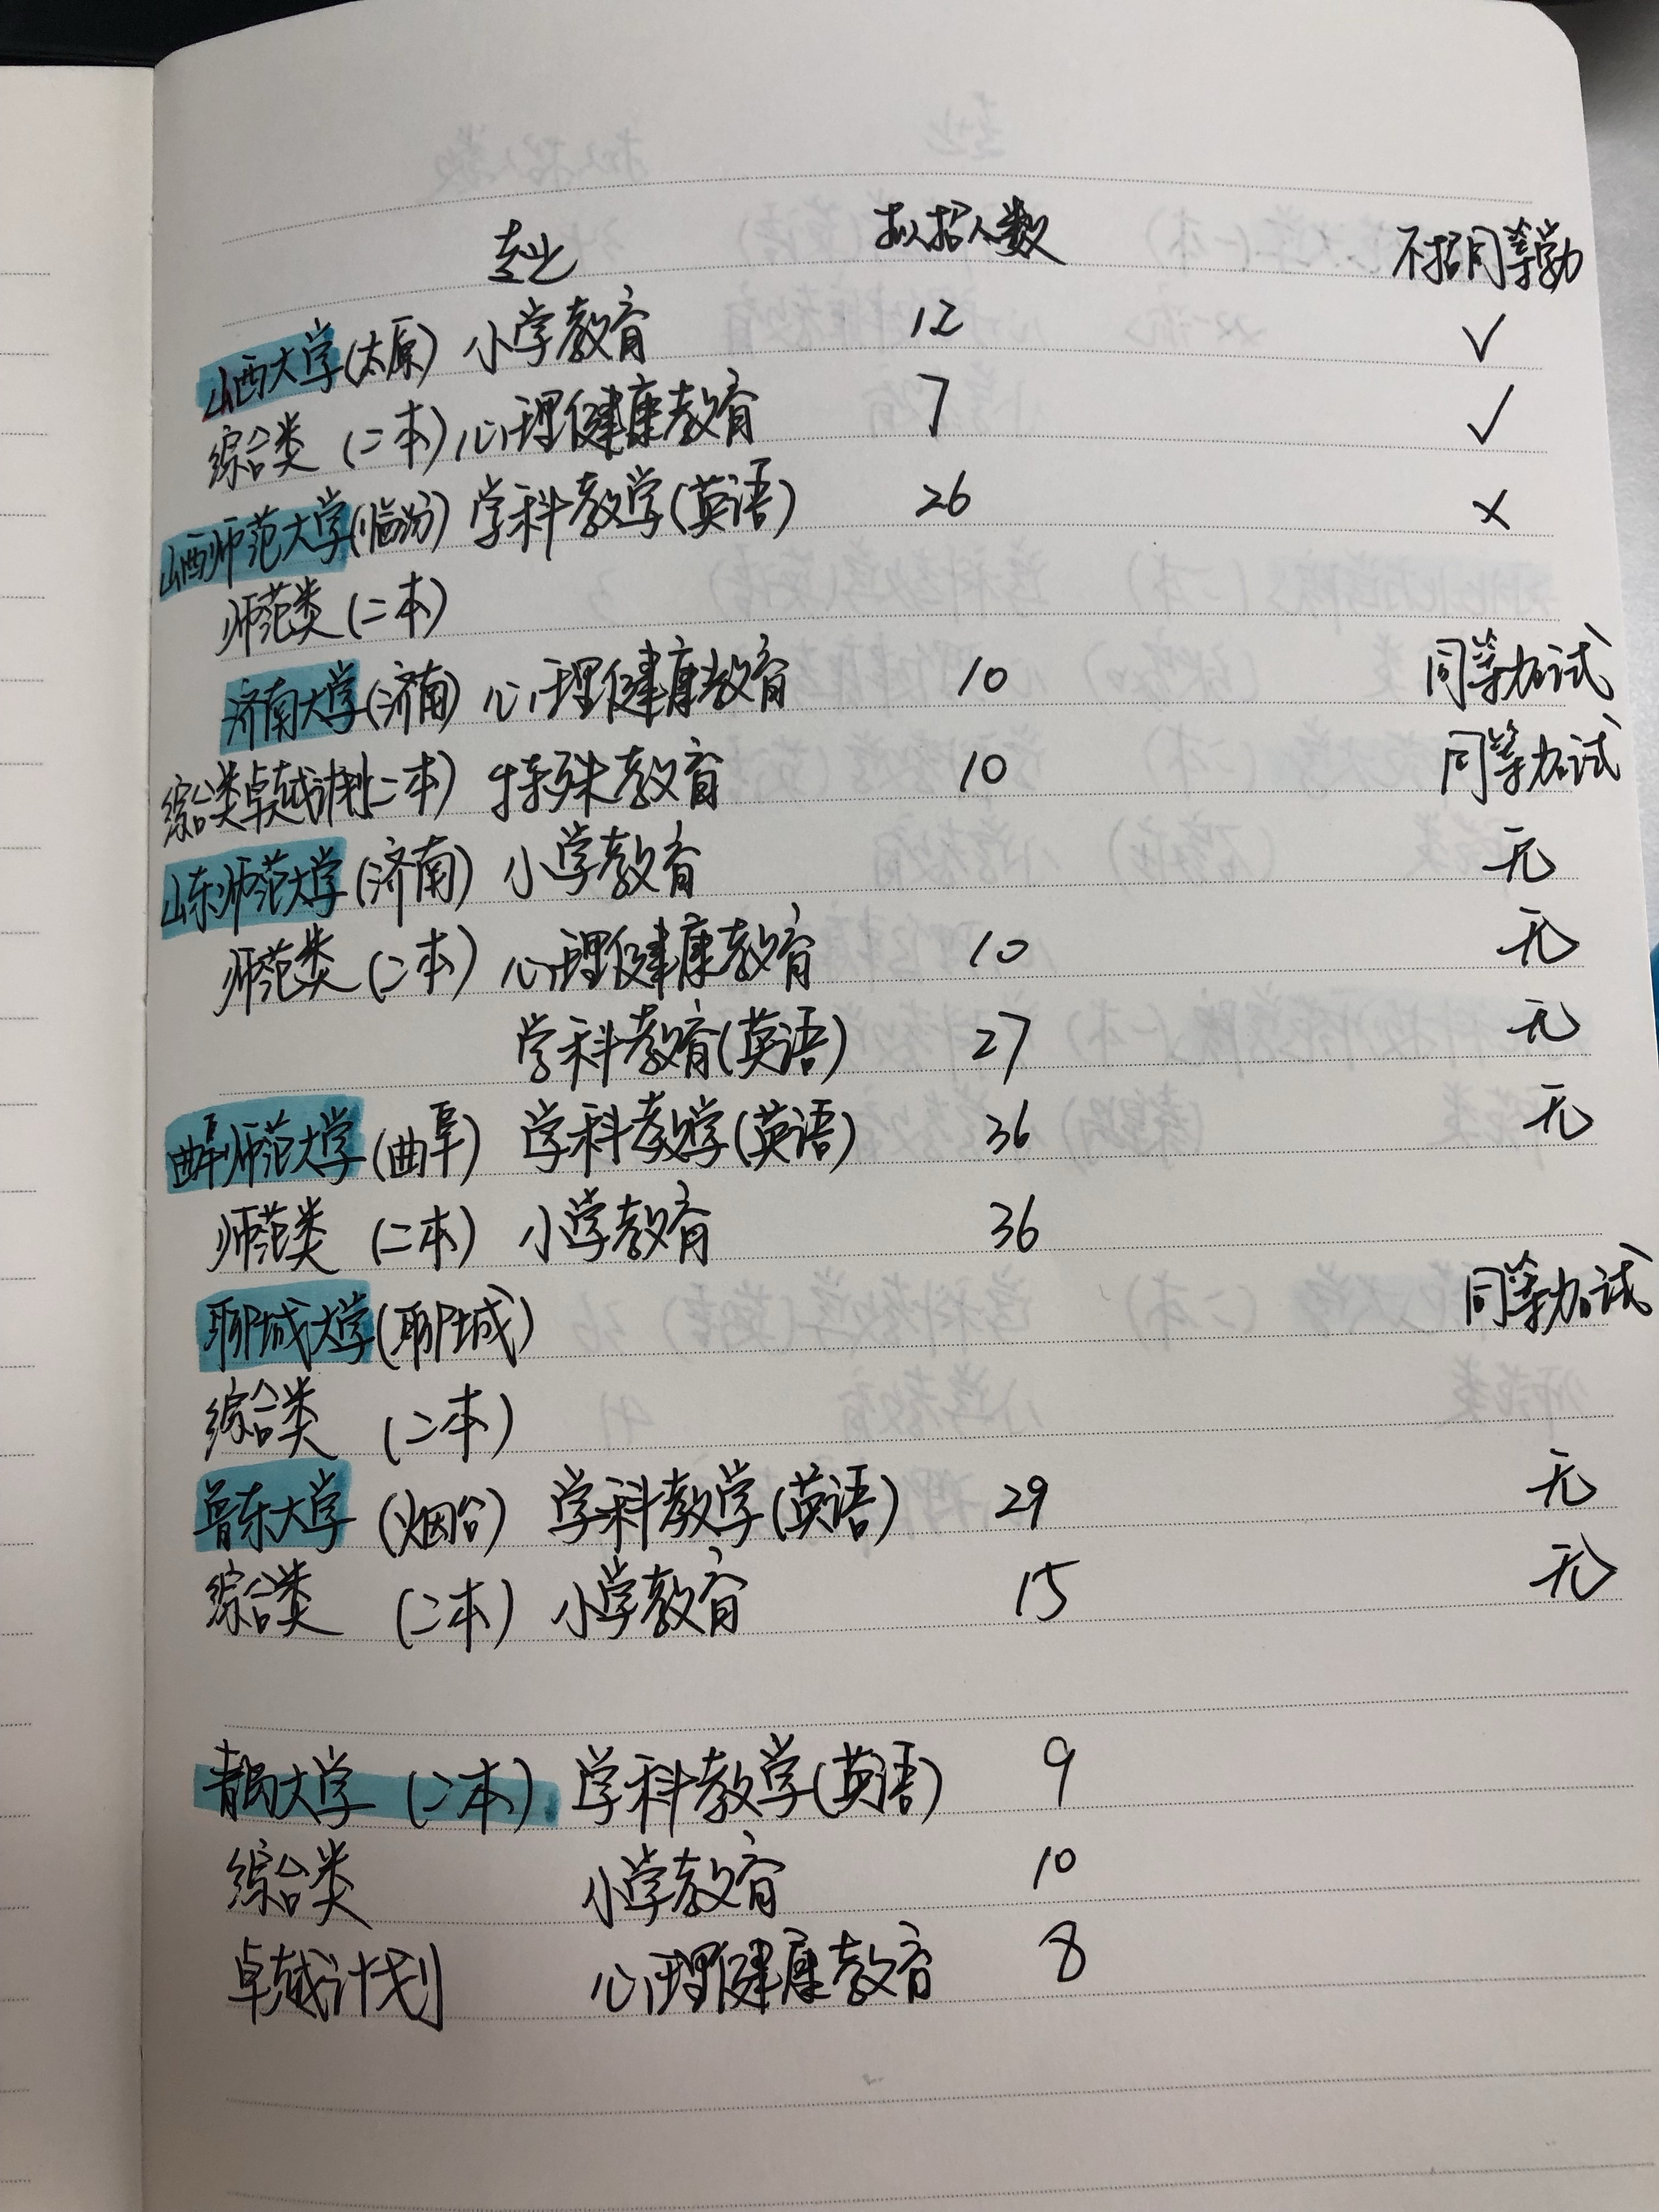 专业 拟招人数 不招同等学力
山西大学(太原) 小学教育 12 ✓
综合类 (二本) 心理健康教育 7 ✓
山西师范大学(临汾) 学科教学(英语) 26 ×
师范类 (二本)
济南大学(济南) 心理健康教育 10 同等加试
综合类卓越计划(二本) 特殊教育 10 同等加试
山东师范大学(济南) 小学教育 无
师范类 (二本) 心理健康教育 10 无
学科教育(英语) 27 无
曲阜师范大学(曲阜) 学科教学(英语) 36 无
师范类 (二本) 小学教育 36
聊城大学(聊城) 同等加试
综合类 (二本)
鲁东大学 (烟台) 学科教学(英语) 29 无
综合类 (二本) 小学教育 15 无
青岛大学 (二本) 学科教学(英语) 9
综合类 小学教育 10
卓越计划 心理健康教育 8